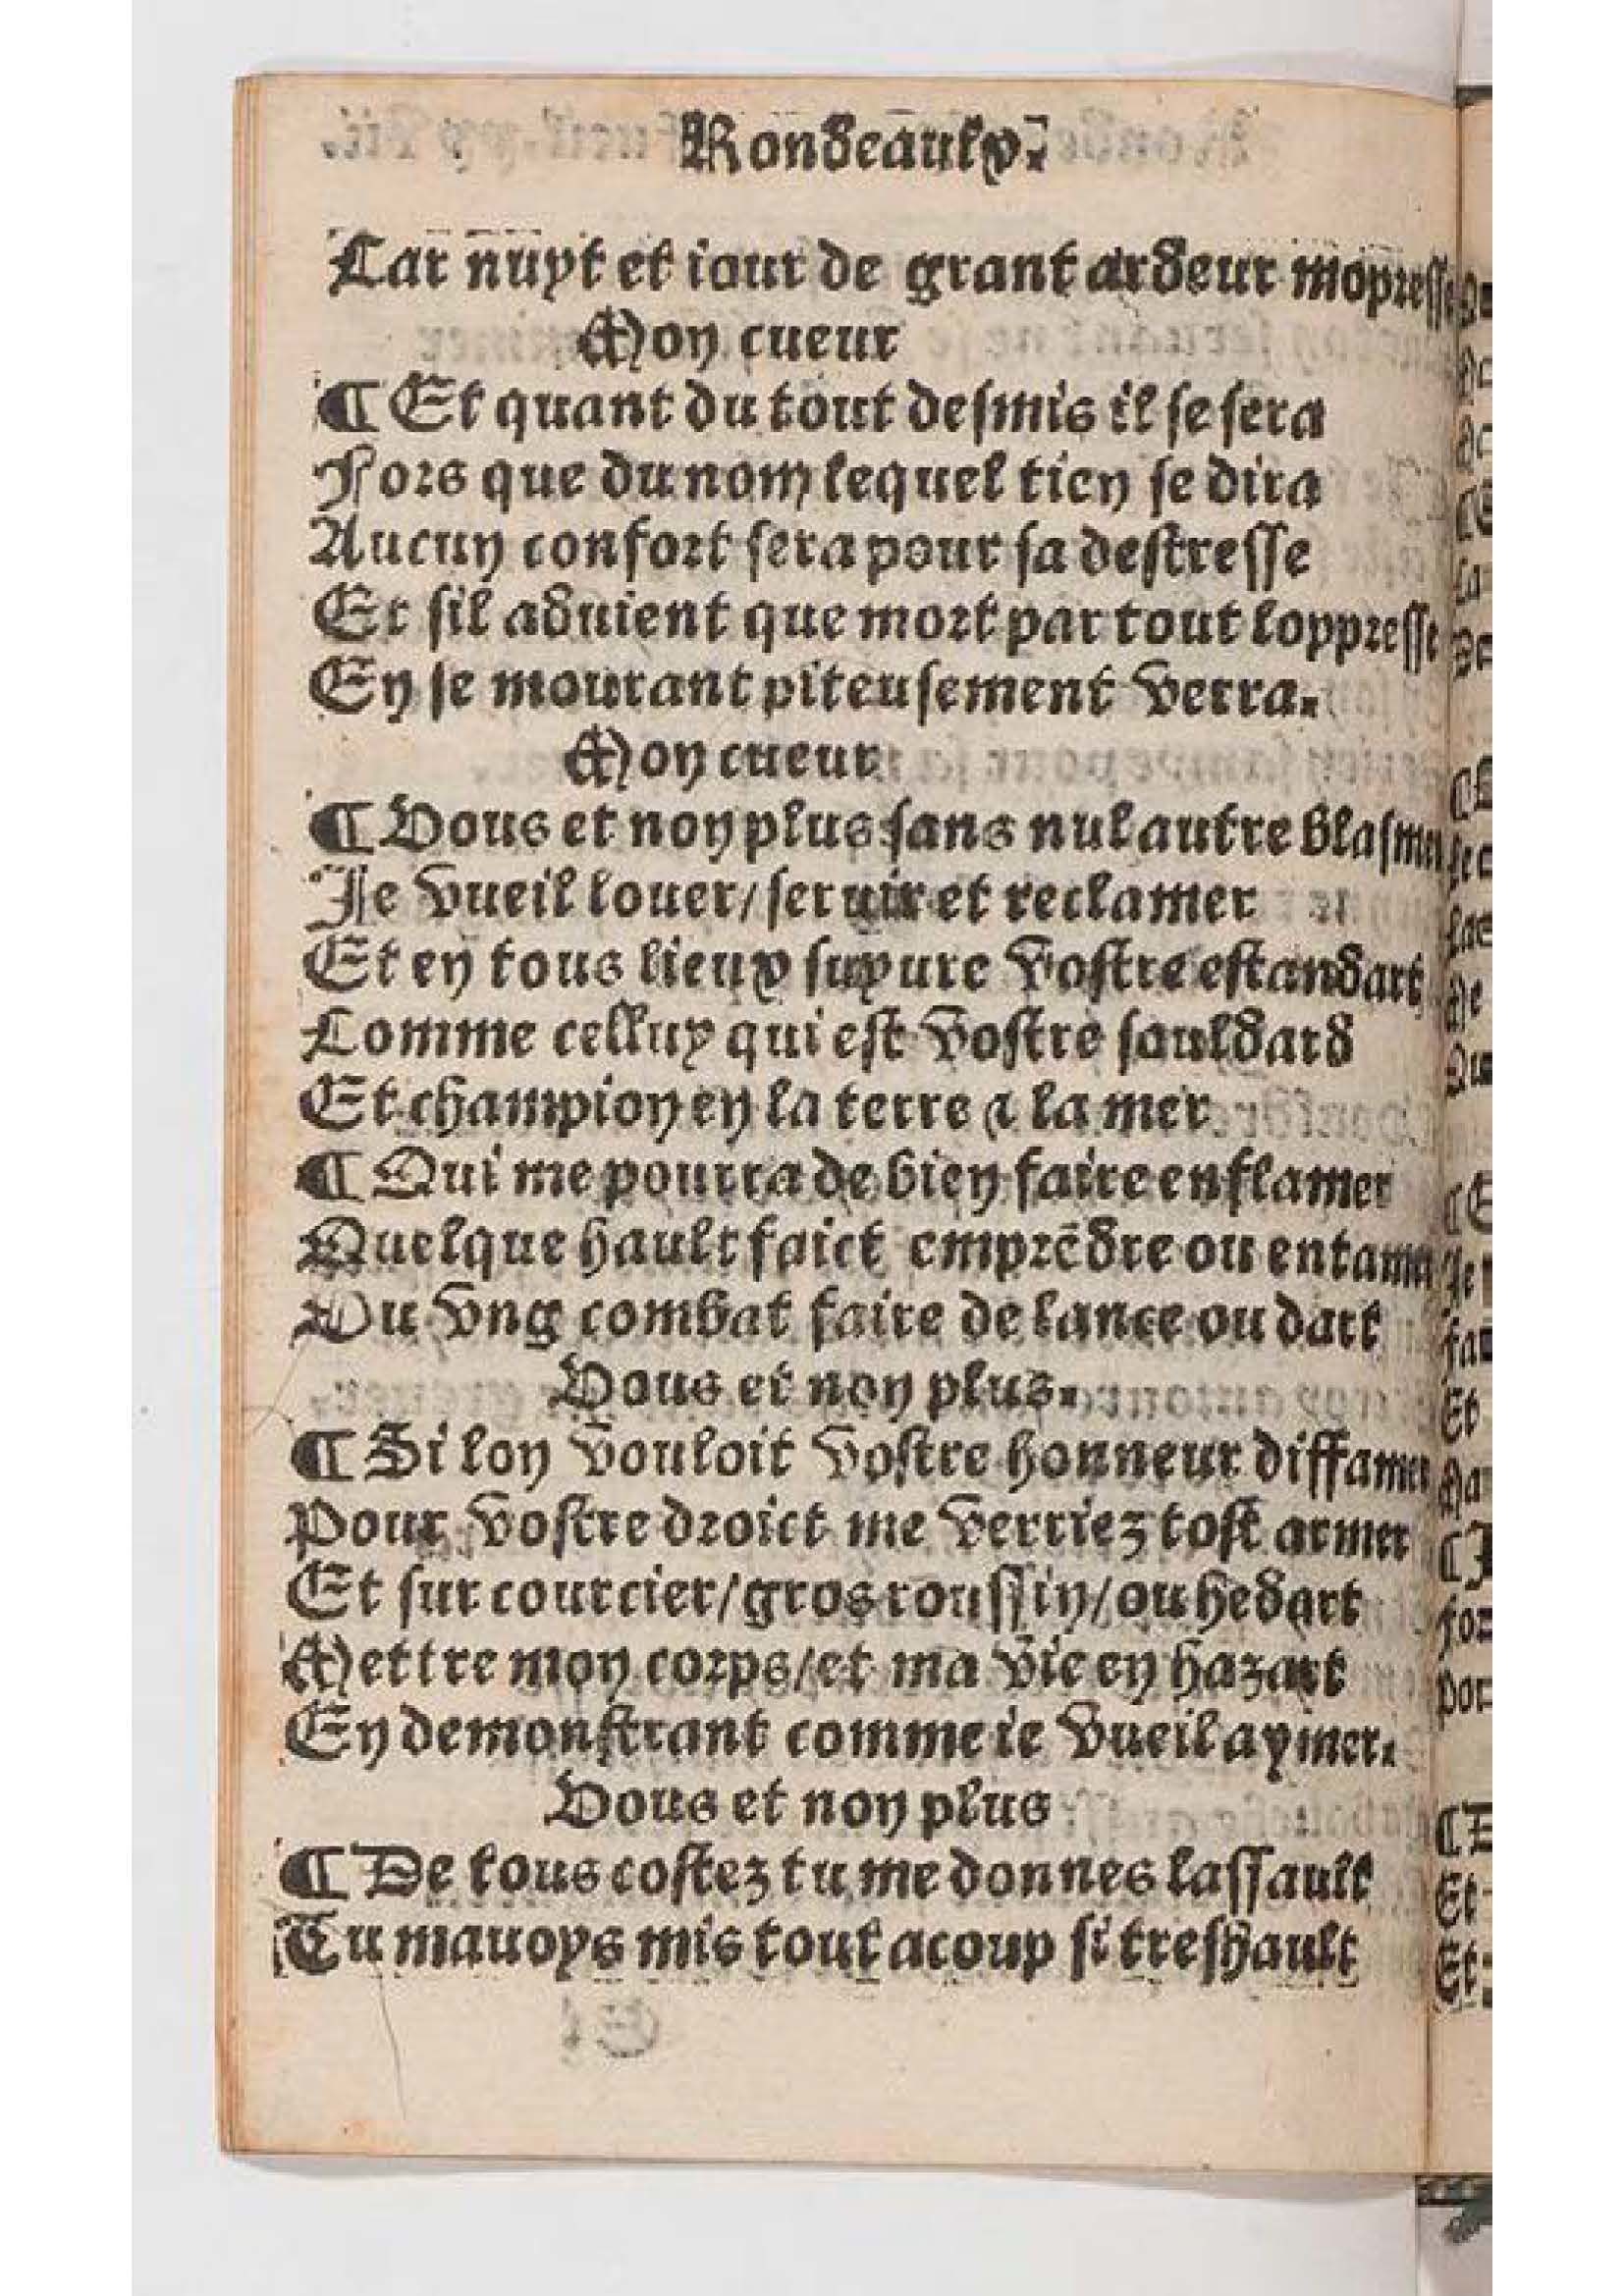 Rondeaulx.
Car nuyt et iour de grant ardeur mopresse
Mon cueur
¶ Et quant du tout desmis il se sera
Fors que du nom lequel tien se dira
Aucun confort sera pour sa destresse
Et sil aduient que mort par tout loppresse
En se mourant piteusement verra.
Mon cueur
¶ Vous et non plus sans nul autre blasmer
Je vueil louer/ seruir et reclamer
Et en tous lieux suyure vostre estandart
Comme celluy qui est vostre souldard
Et champion en la terre & la mer
¶ Qui me pourra de bien faire enflamer
Quelque hault faict emprēdre ou entamer
Ou vng combat faire de lance ou dart
Vous et non plus.
¶ Si lon vouloit vostre honneur diffamer
Pour vostre droict me verriez tost armer
Et sur courcier/ gros roussin/ ou hedart
Mettre mon corps/ et ma vie en hazart
En demonstrant comme ie vueil aymer.
Vous et non plus
¶ De tous costez tu me donnes lassault
Tu mauoys mis tout acoup si treshault